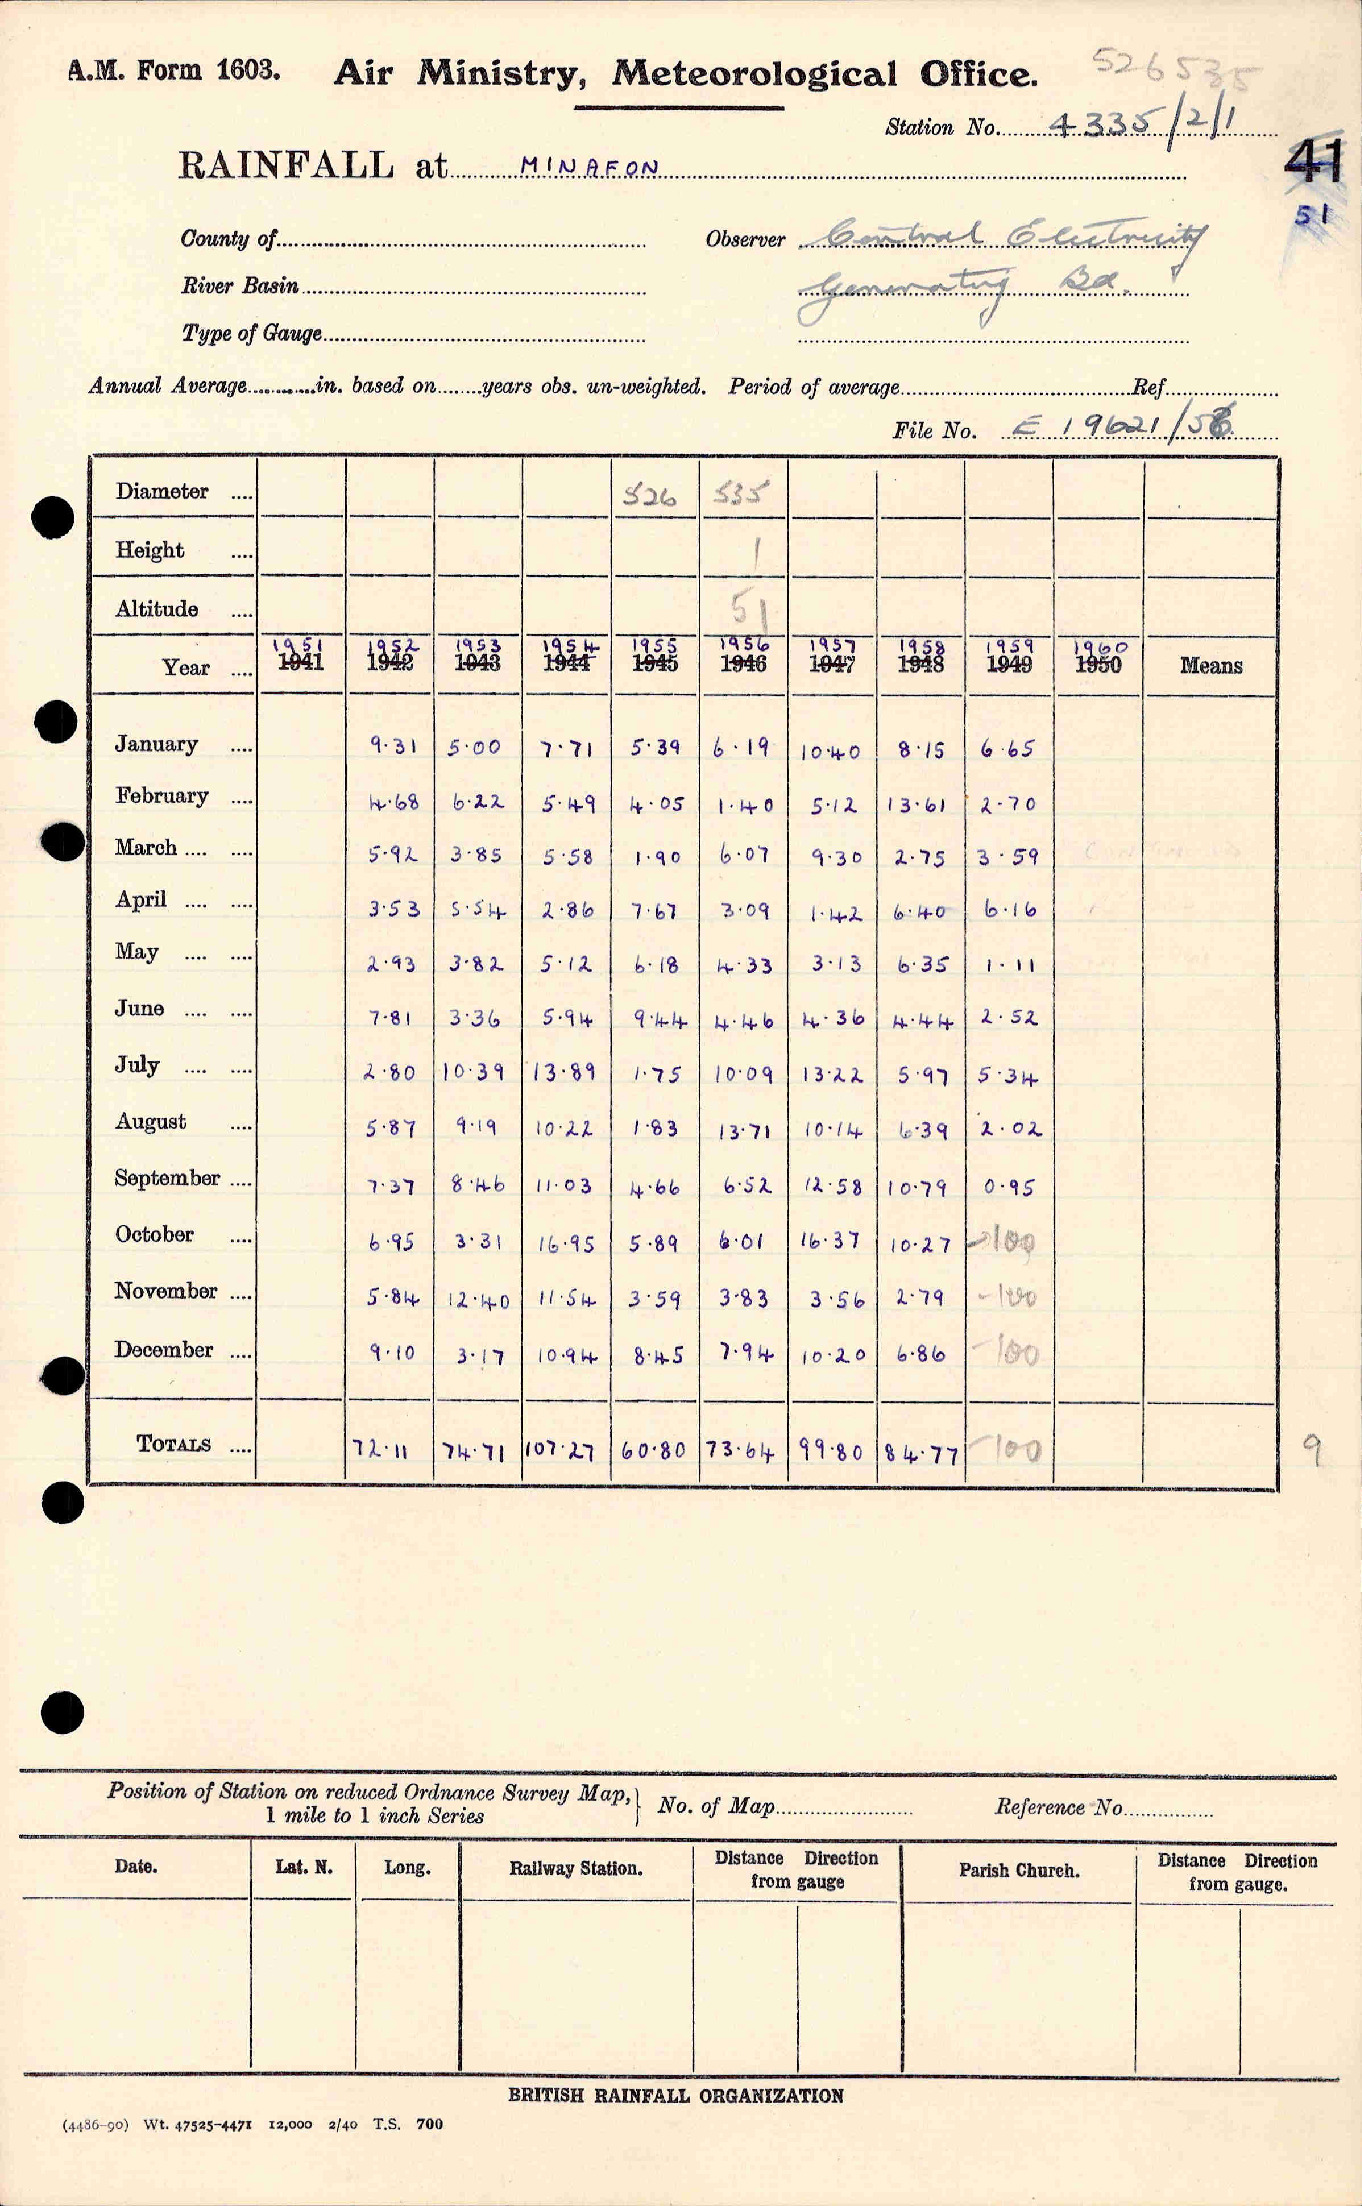 526535
A.M. Form 1603. Air Ministry, Meteorological Office.
Station No. 4335/2/1
41
RAINFALL at MINAFON
51
County of Observer Central Electricity
River Basin Generating Bd.
Type of Gauge
Annual Average in. based on years obs. un-weighted. Period of average Ref
File No. E 19621/56
Diameter 526 535
Height 1
Altitude 51
1951 1952 1953 1954 1955 1956 1957 1958 1959 1960
Year 1941 1942 1943 1944 1945 1946 1947 1948 1949 1950 Means
January 9.31 5.00 7.71 5.39 6.19 10.40 8.15 6.65
February 4.68 6.22 5.49 4.05 1.40 5.12 13.61 2.70
March 5.92 3.85 5.58 1.90 6.07 9.30 2.75 3.59
April 3.53 5.54 2.86 7.67 3.09 1.42 6.40 6.16
May 2.93 3.82 5.12 6.18 4.33 3.13 6.35 1.11
June 7.81 3.36 5.94 9.44 4.46 4.36 4.44 2.52
July 2.80 10.39 13.89 1.75 10.09 13.22 5.97 5.34
August 5.87 9.19 10.22 1.83 13.71 10.14 6.39 2.02
September 7.37 8.46 11.03 4.66 6.52 12.58 10.79 0.95
October 6.95 3.31 16.95 5.89 6.01 16.37 10.27 -100
November 5.84 12.40 11.54 3.59 3.83 3.56 2.79 -100
December 9.10 3.17 10.94 8.45 7.94 10.20 6.86 -100
TOTALS 72.11 74.71 107.27 60.80 73.64 99.80 84.77 -100 9
Position of Station on reduced Ordnance Survey Map, 1 mile to 1 inch Series } No. of Map Reference No
Date. Lat. N. Long. Railway Station. Distance Direction from gauge Parish Church. Distance Direction from gauge.
BRITISH RAINFALL ORGANIZATION
(4486-90) Wt. 47525-4471 12,000 2/40 T.S. 700